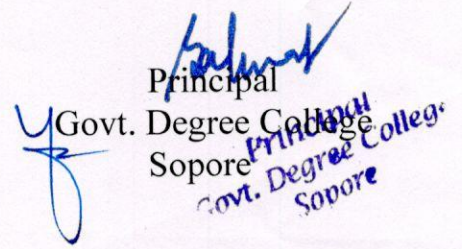 Principal
Govt. Degree College
Sopore
Principal
Govt. Degree College
Sopore